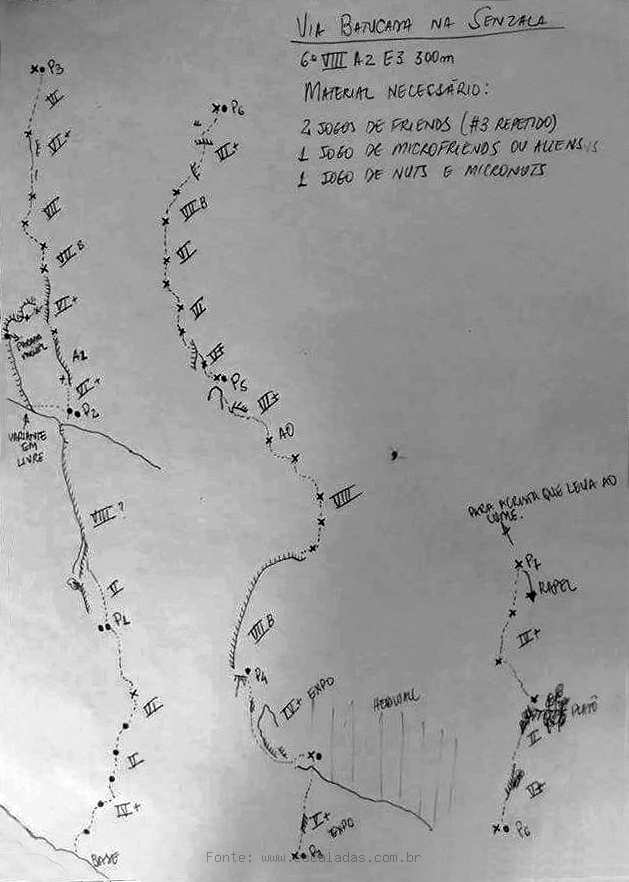 VIA BATUCADA NA SENZALA
6º VIII A2 E3 300m
MATERIAL NECESSÁRIO:
2 JOGOS DE FRIENDS (#3 REPETIDO)
1 JOGO DE MICROFRIENDS OU ALIENS
1 JOGO DE NUTS E MICRONUTS
P3
VI
VI+
VII
VII B
VI+
A2
VI+
P2
VARIANTE
EM
LIVRE
VIII?
V
P1
VI
V
IV+
BASE
P6
VI+
VIII B
VI
VI
VI
P5
VI+
A0
VIII
VIII B
P4
IV+ EXPO
HEADWALL
V+
EXPO
P3
PARA A CRISTA QUE LEVA AO
CUME.
P7
RAPEL
IV+
PLATÔ
II
VI
P6
Fonte: www.escaladas.com.br